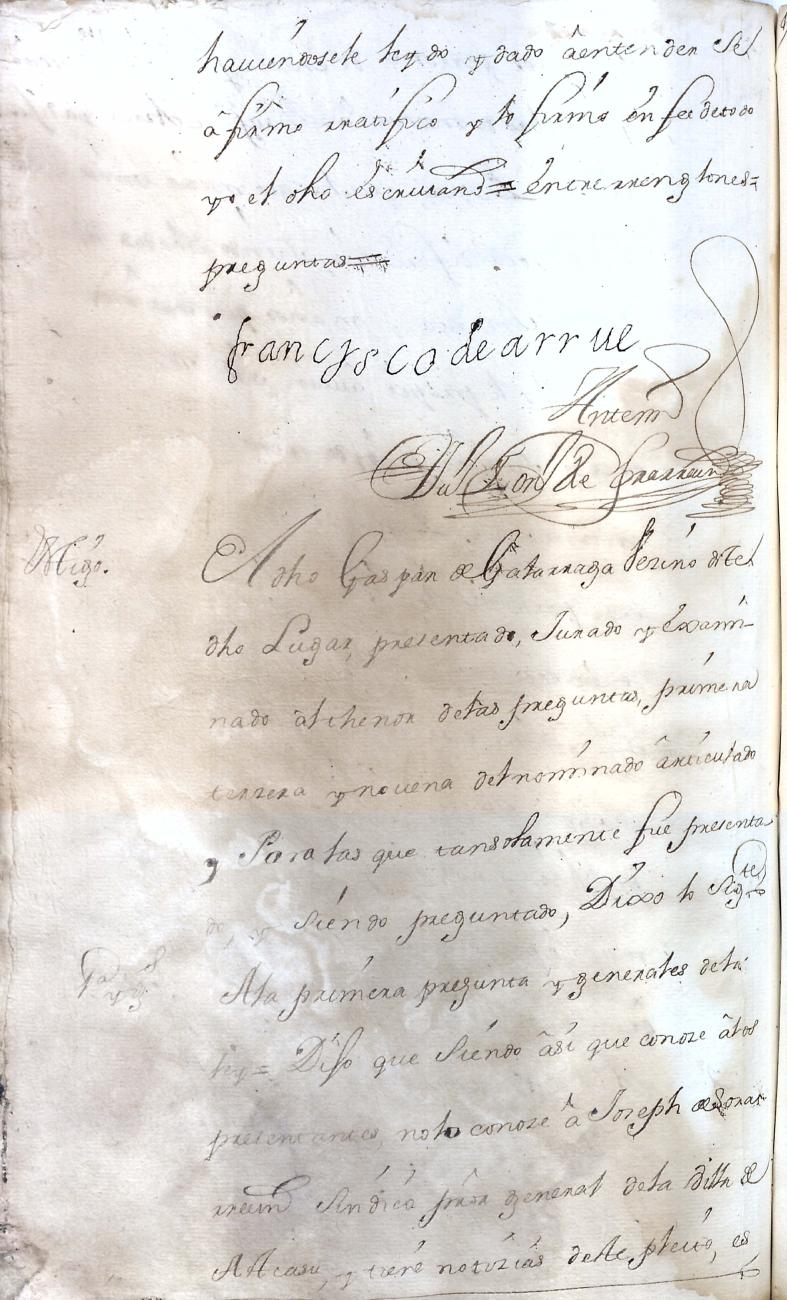 haviéndosele leydo y dado â entender se
â firmo rratífico y lo firmó en fee de todo
yo el dho escriuano = entrerrenglones =
preguntas =
francisco de arrue
Antemi
de
Migo. A dho Gaspar de Gatarraga Vezino deste
dho Lugar, presentado, Jurado y Exami-
nado al thenor de las preguntas, primera
terzera y novena del nominado ârticulado
y Para las que tansolamente fue presenta
do, y siendo preguntado, Dixo lo sigte
Pa y gs A la primera pregunta y generales de la
ley = Dijo que siendo âsi que conoze âlos
presentantes, no lo conoze â Joseph de
sindico pror general de la Villa de
y tiene notizias deste pleito, es